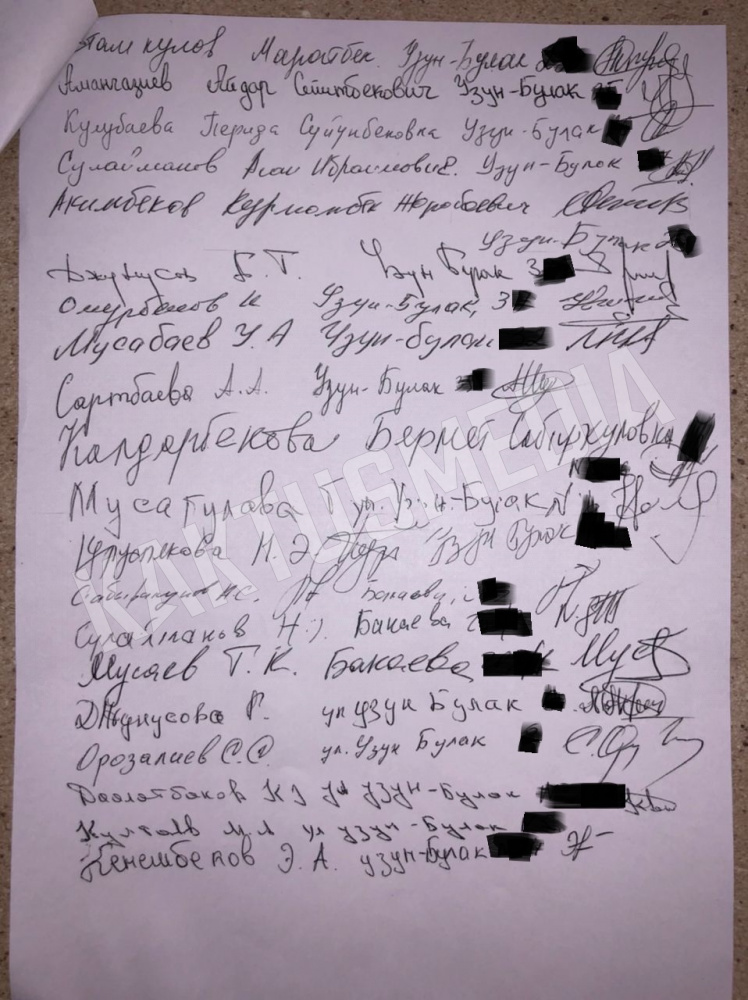 Маратбек Узун-Булак
Амангазиев Айдар Сейитбекович Узун-Булак
Кулубаева Перида Суйунбековна Узун-Булак
Сулайманов Асан Ибраимович Узун-Булак
Акимбеков Курманбек Жоробаевич
Узун-Булак
Джунусов Б.Т. Узун Булак 3
Омурбеков И Узун-Булак, 3
Мусабаев У.А Узун-булак
Сартбаева А.А. Узун-Булак
Калдарбекова Бермет Сабиркуловна
Мусакулова Гул. Узун-Булак N
Н.Э. Узун Булак
Н.С. Бакаева
Сулайманов Н Бакаева
Мусаев Т.К. Бакаева
Джунусова Г. ул узун Булак
Орозалиев С.С. ул. Узун Булак
Даолатбаков К ул узун-Булак
М.А ул узун-Булак
Кенешбеков Э.А. узун-Булак
KAKTUSMEDIA